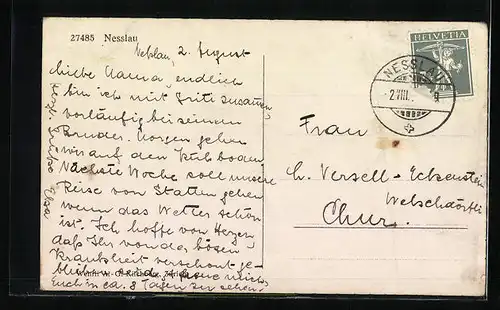 27485 Nesslau
Nesslau, 2. August
Liebe Mama, endlich
bin ich mit Fritz zusammen,
vorläufig bei seinem
Bruder. Morgen gehen
wir auf den Kühboden
Nächste Woche soll unsere
Reise von Statten gehen
wenn das Wetter schön
ist. Ich hoffe von Herzen,
daß Ihr von der bösen
Krankheit verschont ge-
blieben seid, freue mich,
Euch in ca. 8 Tagen zu sehen.
Herzl. Grüße Elsa
HELVETIA
NESSLAU
2.VIII.
Frau
Ch. Versell-Eckenstein
Welschdörfli
Chur.